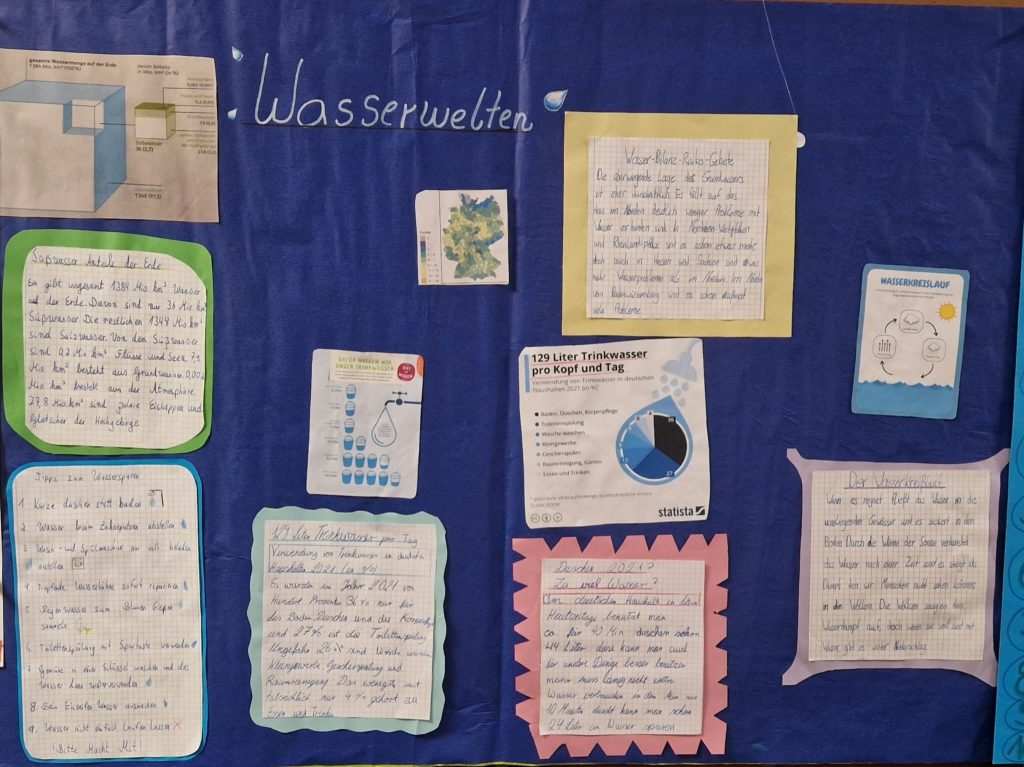 Wasserwelten
gesamte Wassermenge auf der Erde
1.384 Mio. km³ (100%)
davon Anteile
in Mio. km³ (in %)
Süßwasser
36 (2,7)
1.348 (97,3)
Süßwasser Anteile der Erde
Es gibt insgesamt 1384 Mio. km³ Wasser
auf der Erde. Davon sind nur 36 Mio. km³
Süßwasser. Die restlichen 1348 Mio. km³
sind Salzwasser. Von dem Süßwasser
sind 0,2 Mio km³ Flüsse und Seen, 7,9
Mio. km³ besteht aus Grundwasser. 0,002
Mio km³ besteht aus der Atmosphäre
27,8 Mio. km³ sind polare Eiskappen und
Gletscher der Hochgebirge
Tipps zum Wassersparen
1. Kurze duschen statt baden
2. Wasser beim Zähneputzen abstellen
3. Wasch- und Spülmaschine nur voll beladen
einstellen
4. Tropfende Wasserhähne sofort reparieren
5. Regenwasser zum Blumen gießen
sammeln
6. Toilettenspülung mit Spartaste verwenden
7. Gemüse in einer Schüssel waschen und das
Wasser dann weiterverwenden
8. Beim Einseifen Wasser ausmachen
9. Wasser nicht einfach Laufen Lassen
! Bitte Macht Mit!
DAFÜR NUTZEN WIR
UNSER TRINKWASSER
GUT
WISSEN
129 Liter Trinkwasser pro Tag
Verwendung von Trinkwasser in deutschen
Haushalten 2021 (in %)
Es wurden im Jahr 2021 von
Hundert Prozenten 36% nur für
das Baden, Duschen und die Körperpflege
und 27% ist die Toilettenspülung
Ungefähr 26% sind Wäsche waschen
Kleingewerbe Geschirrspülung und
Raumreinigung. Das wenigste mit
tatsächlich nur 4% gehört zu
Essen und Trinken
Wasser-Bilanz-Risiko-Gebiete
Die überwiegende Lage des Grundwassers
ist eher durchschnittlich. Es fällt auf das
man im Norden deutlich weniger Probleme mit
Wasser vorhanden sind. In Nordrhein-Westphalen
und Rheinland-Pfalz sind es schon etwas mehr
doch auch in Hessen und Sachsen sind etwas
mehr Wasserprobleme als im Norden. Im Norden
von Baden-Würtemberg sind es schon äußerst
viele Probleme
129 Liter Trinkwasser
pro Kopf und Tag
Verwendung von Trinkwasser in deutschen
Haushalten 2021 (in %)
Baden, Duschen, Körperpflege
Toilettenspülung
Wäsche waschen
Kleingewerbe
Geschirrspülen
Raumreinigung, Garten
Essen und Trinken
36
27
12
4
* geschätzte Verbrauchsmenge, durchschnittliche Anteile
Quelle: BDEW
statista
Duschen 2021?
Zu viel Wasser?
Im deutschen Haushalt in
Heutzutage benutzt man
ca. für 10 Min duschen schon
Liter dass kann man auch
für andere Dinge besser benutzen
mann muss Lange nicht
Wasser verbrauchen in dem Man nur
10 Minuten duscht kann man schon
24 Liter an Wasser sparen
WASSERKREISLAUF
Der Wasserkreislauf
Wenn es regnet fließt das Wasser in die
umliegenden Gewässer und es sickert in den
Boden. Durch die Wärme der Sonne verdunstet
das Wasser nach einer Zeit und es steigt als
Dampf, den wir Menschen nicht sehen können,
in die Wolken. Die Wolken saugen den
Wasserdampf auf, doch wenn sie voll sind mit
Wasser gibt es wieder Niederschlag.